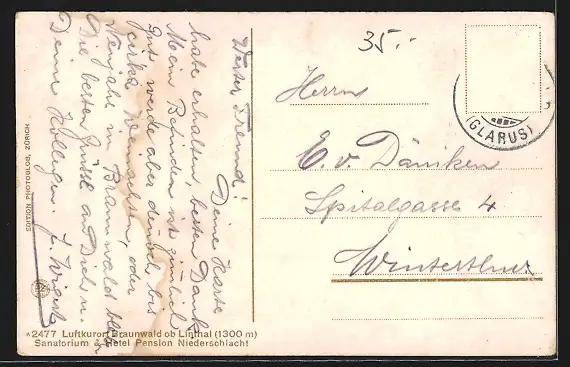 Werter Freund!
Deine Karte
habe erhalten, besten Dank.
Mein Befinden ist ziemlich
gut, werde aber dennoch bis
zirka Weihnachten, oder
Neujahr in Braunwald bleiben
Die besten Grüsse an Dich u.
Deine Kollegen.
35.-
Herrn
E. v. Däniken
Spitalgasse 4
Winterthur
(GLARUS)
EDITION PHOTOGLOB, ZÜRICH
*2477 Luftkurort Braunwald ob Linthal (1300 m)
Sanatorium & Hotel Pension Niederschlacht